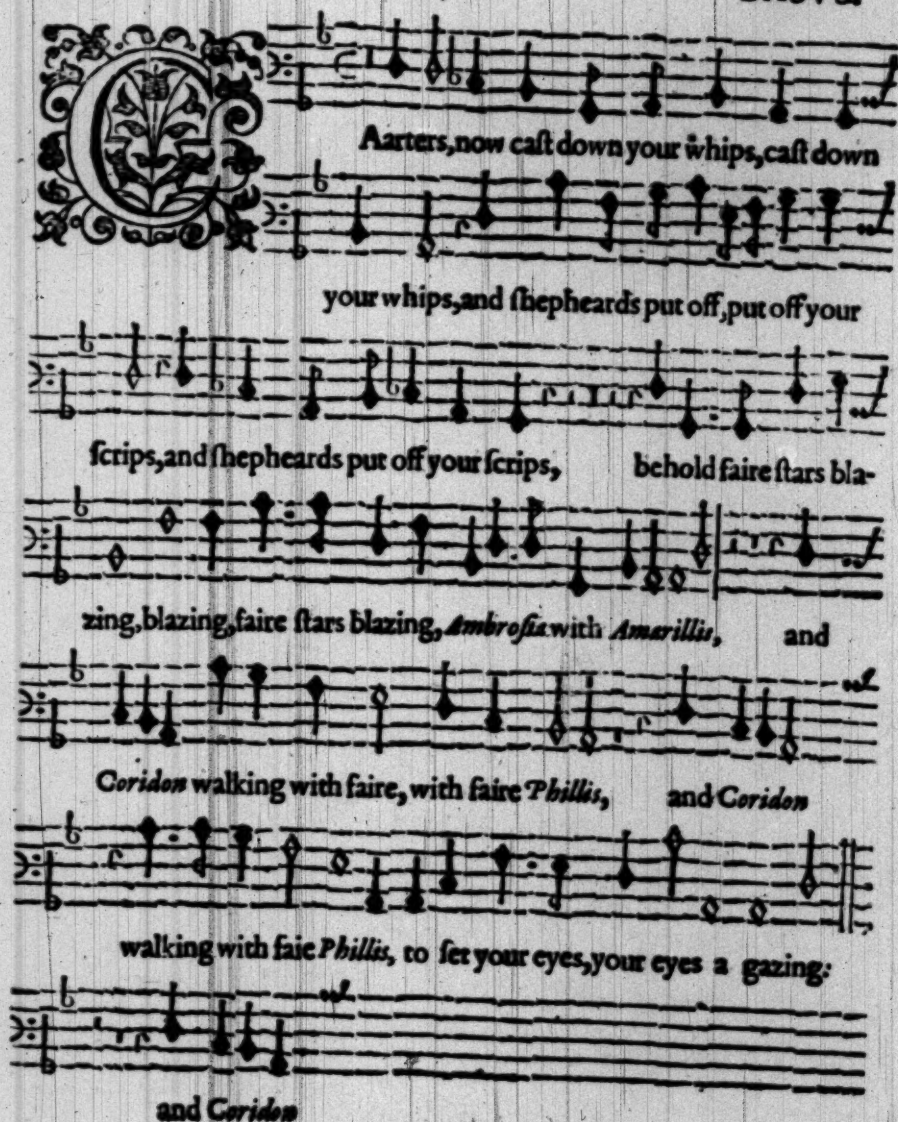 CAarters, now caſt down your whips, caſt down
your whips, and ſhepheards put off, put off your
ſcrips, and ſhepheards put off your ſcrips, behold faire ſtars bla-
zing, blazing, faire ſtars blazing, Ambroſia with Amarillis, and
Coridon walking with faire, with faire Phillis, and Coridon
walking with faie Phillis, to ſet your eyes, your eyes a gazing:
and Coridon